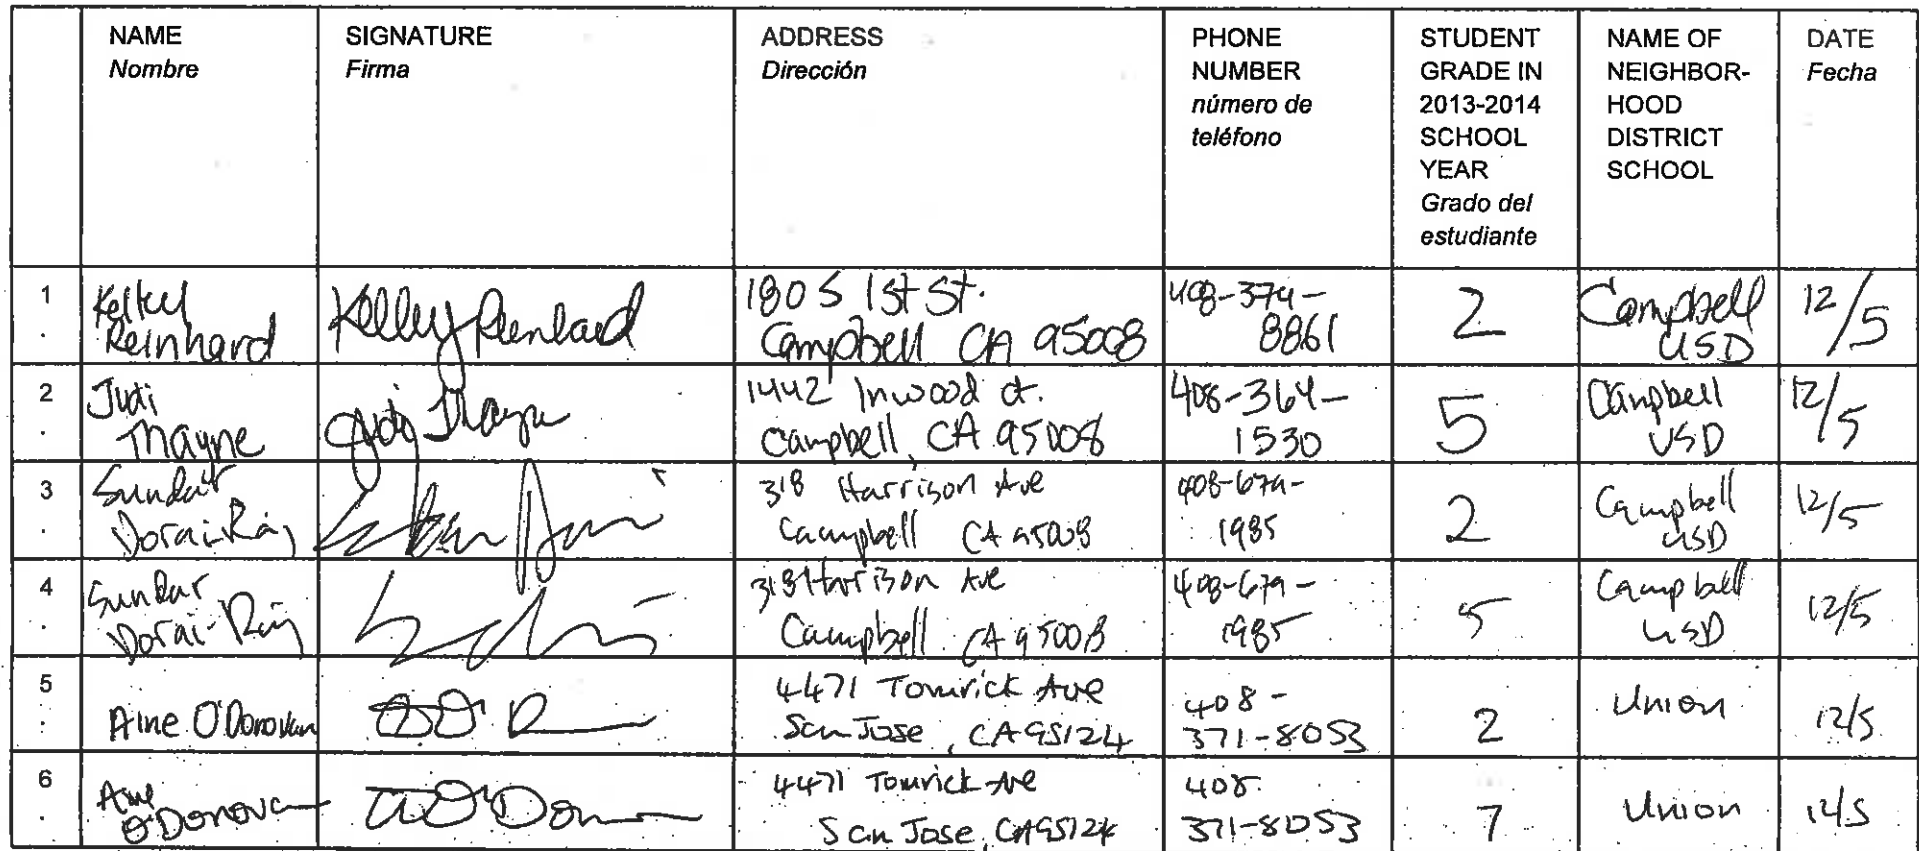 NAME
Nombre
SIGNATURE
Firma
ADDRESS
Dirección
PHONE
NUMBER
número de
teléfono
STUDENT
GRADE IN
2013-2014
SCHOOL
YEAR
Grado del
estudiante
NAME OF
NEIGHBOR-
HOOD
DISTRICT
SCHOOL
DATE
Fecha
1.
Kelley
Reinhard
Kelley Reinhard
180 S 1st St.
Campbell CA 95008
408-374-
8861
2
Campbell
USD
12/5
2.
Judi
Thayne
Judi
1442 Inwood ct.
Campbell, CA 95008
408-364-
1530
5
Campbell
USD
12/5
3.
Sundar
Dorai-Raj
318 Harrison Ave
Campbell CA 95008
408-679-
1985
2
Campbell
USD
12/5
4.
Sundar
Dorai-Raj
318 Harrison Ave
Campbell CA 95008
408-679-
1985
5
Campbell
USD
12/5
5.
Aine O'Donovan
4471 Tomrick Ave
San Jose, CA 95124
408-
371-8053
2
Union
12/5
6.
Aine
O'Donovan
4471 Tomrick Ave
San Jose, CA 95124
408.
371-8053
7
Union
12/5